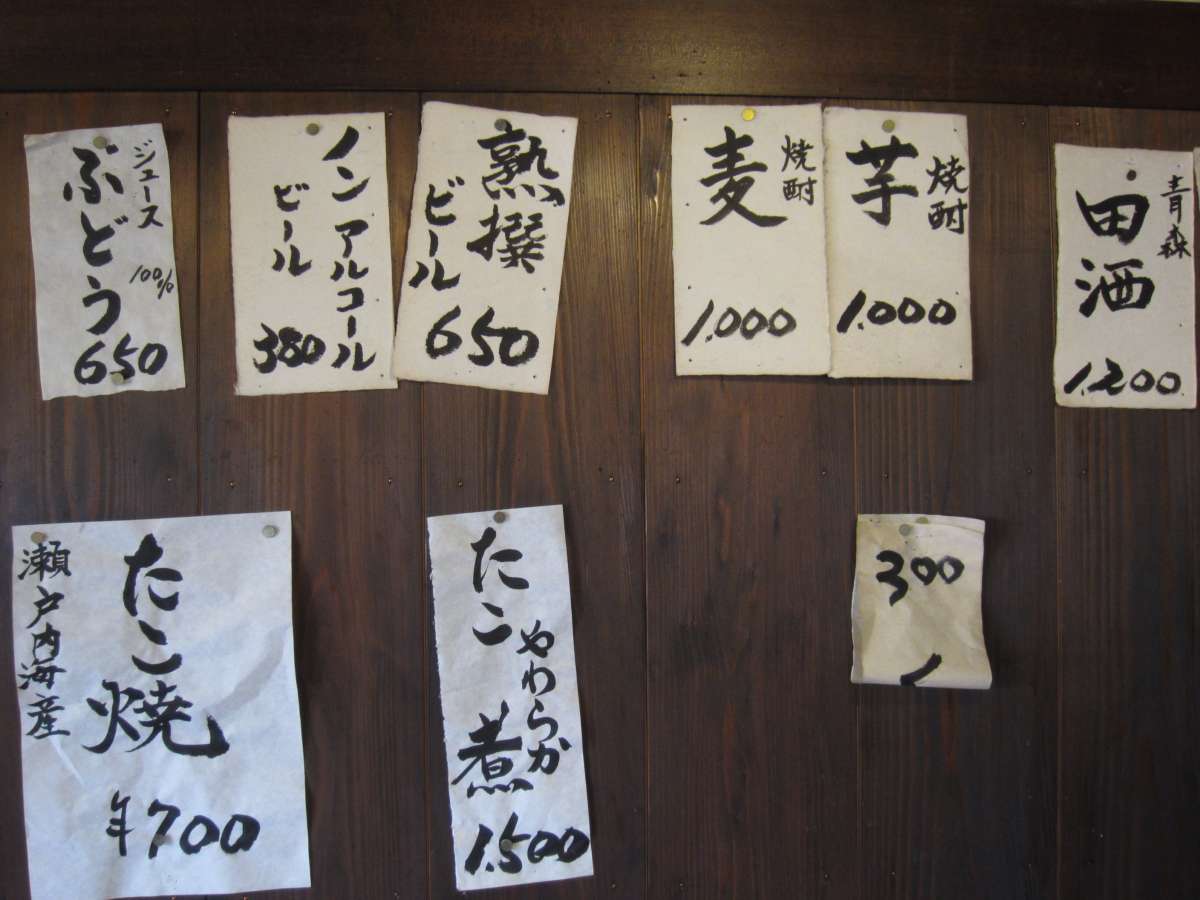 ジュース
ぶどう
100%
650
ノンアルコール
ビール
380
熟撰
ビール
650
焼酎
麦
1.000
焼酎
芋
1.000
青森
田酒
1.200
瀬戸内海産
たこ焼
¥700
たこ
やわらか
煮
1.500
300